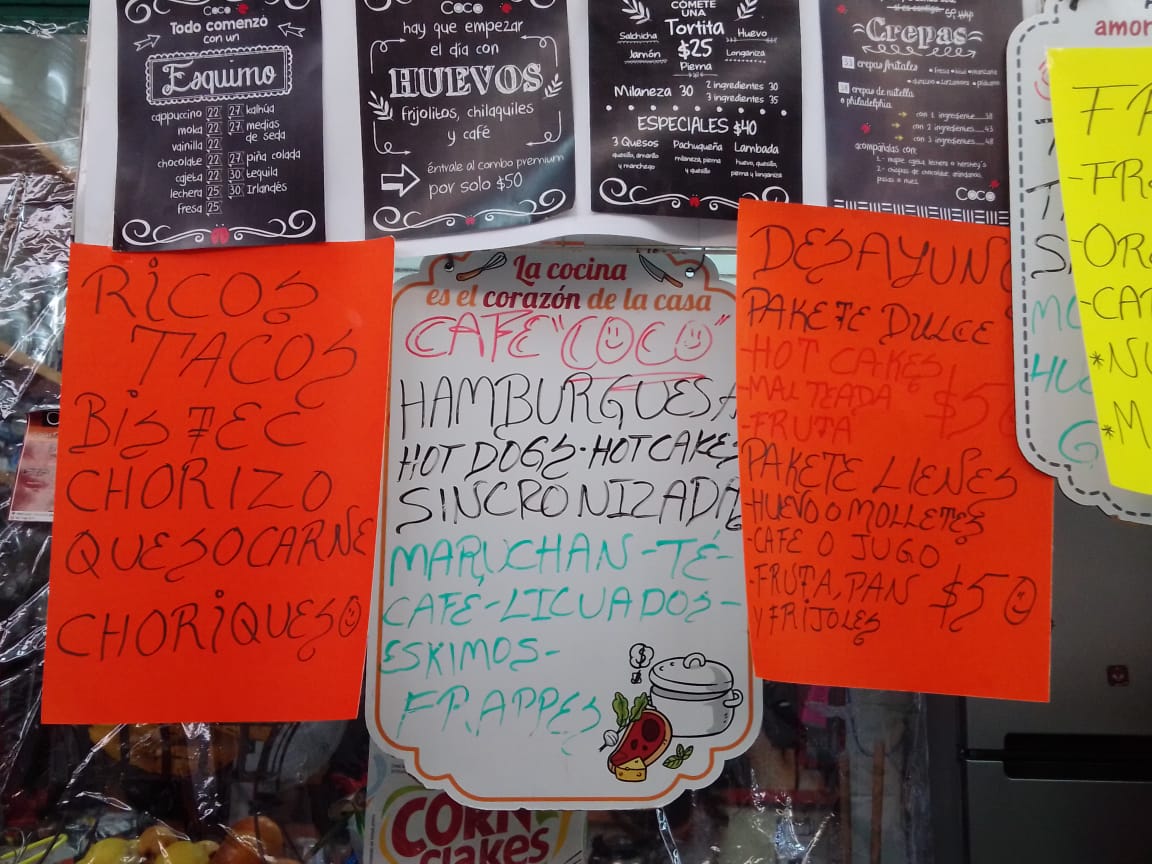 Coco
Todo comenzó
con un
Esquimo
cappuccino 22 27 kalhúa
moka 22 27 medias
de seda
vainilla 22
chocolate 22 27 piña colada
cajeta 22 30 tequila
lechera 25 30 Irlandés
fresa 25
Coco
hay que empezar
el día con
HUEVOS
frijolitos, chilaquiles
y café
éntrale al combo premium
por solo $50
COMETE
UNA
Tortita
Salchicha
Huevo
$25
Jamón
Longaniza
Pierna
Milaneza 30
2 ingredientes 30
3 ingredientes 35
ESPECIALES $40
3 Quesos Pachuqueña Lambada
quesillo, amarillo milaneza, pierna huevo, quesillo,
y manchego y quesillo pierna y longaniza
Crepas
crepas frutales
crepas de nutella
o philadelphia
con 1 ingrediente 38
con 2 ingredientes 43
con 3 ingredientes 48
acompáñadas con:
Coco
RICOS
TACOS
BISTEC
CHORIZO
QUESOCARNE
CHORIQUESO
La cocina
es el corazón de la casa
CAFE "COCO"
HAMBURGUESA
HOT DOGS·HOTCAKES
SINCRONIZADA
MARUCHAN-TÉ-
CAFE-LICUADOS-
ESKIMOS-
FRAPPES
CORN
flakes
DESAYUNO
PAKETE DULCE
-HOT CAKES
-MALTEADA $50
-FRUTA
PAKETE LLENES
-HUEVO O MOLLETES
-CAFE O JUGO
-FRUTA, PAN $50
Y FRIJOLES
amor